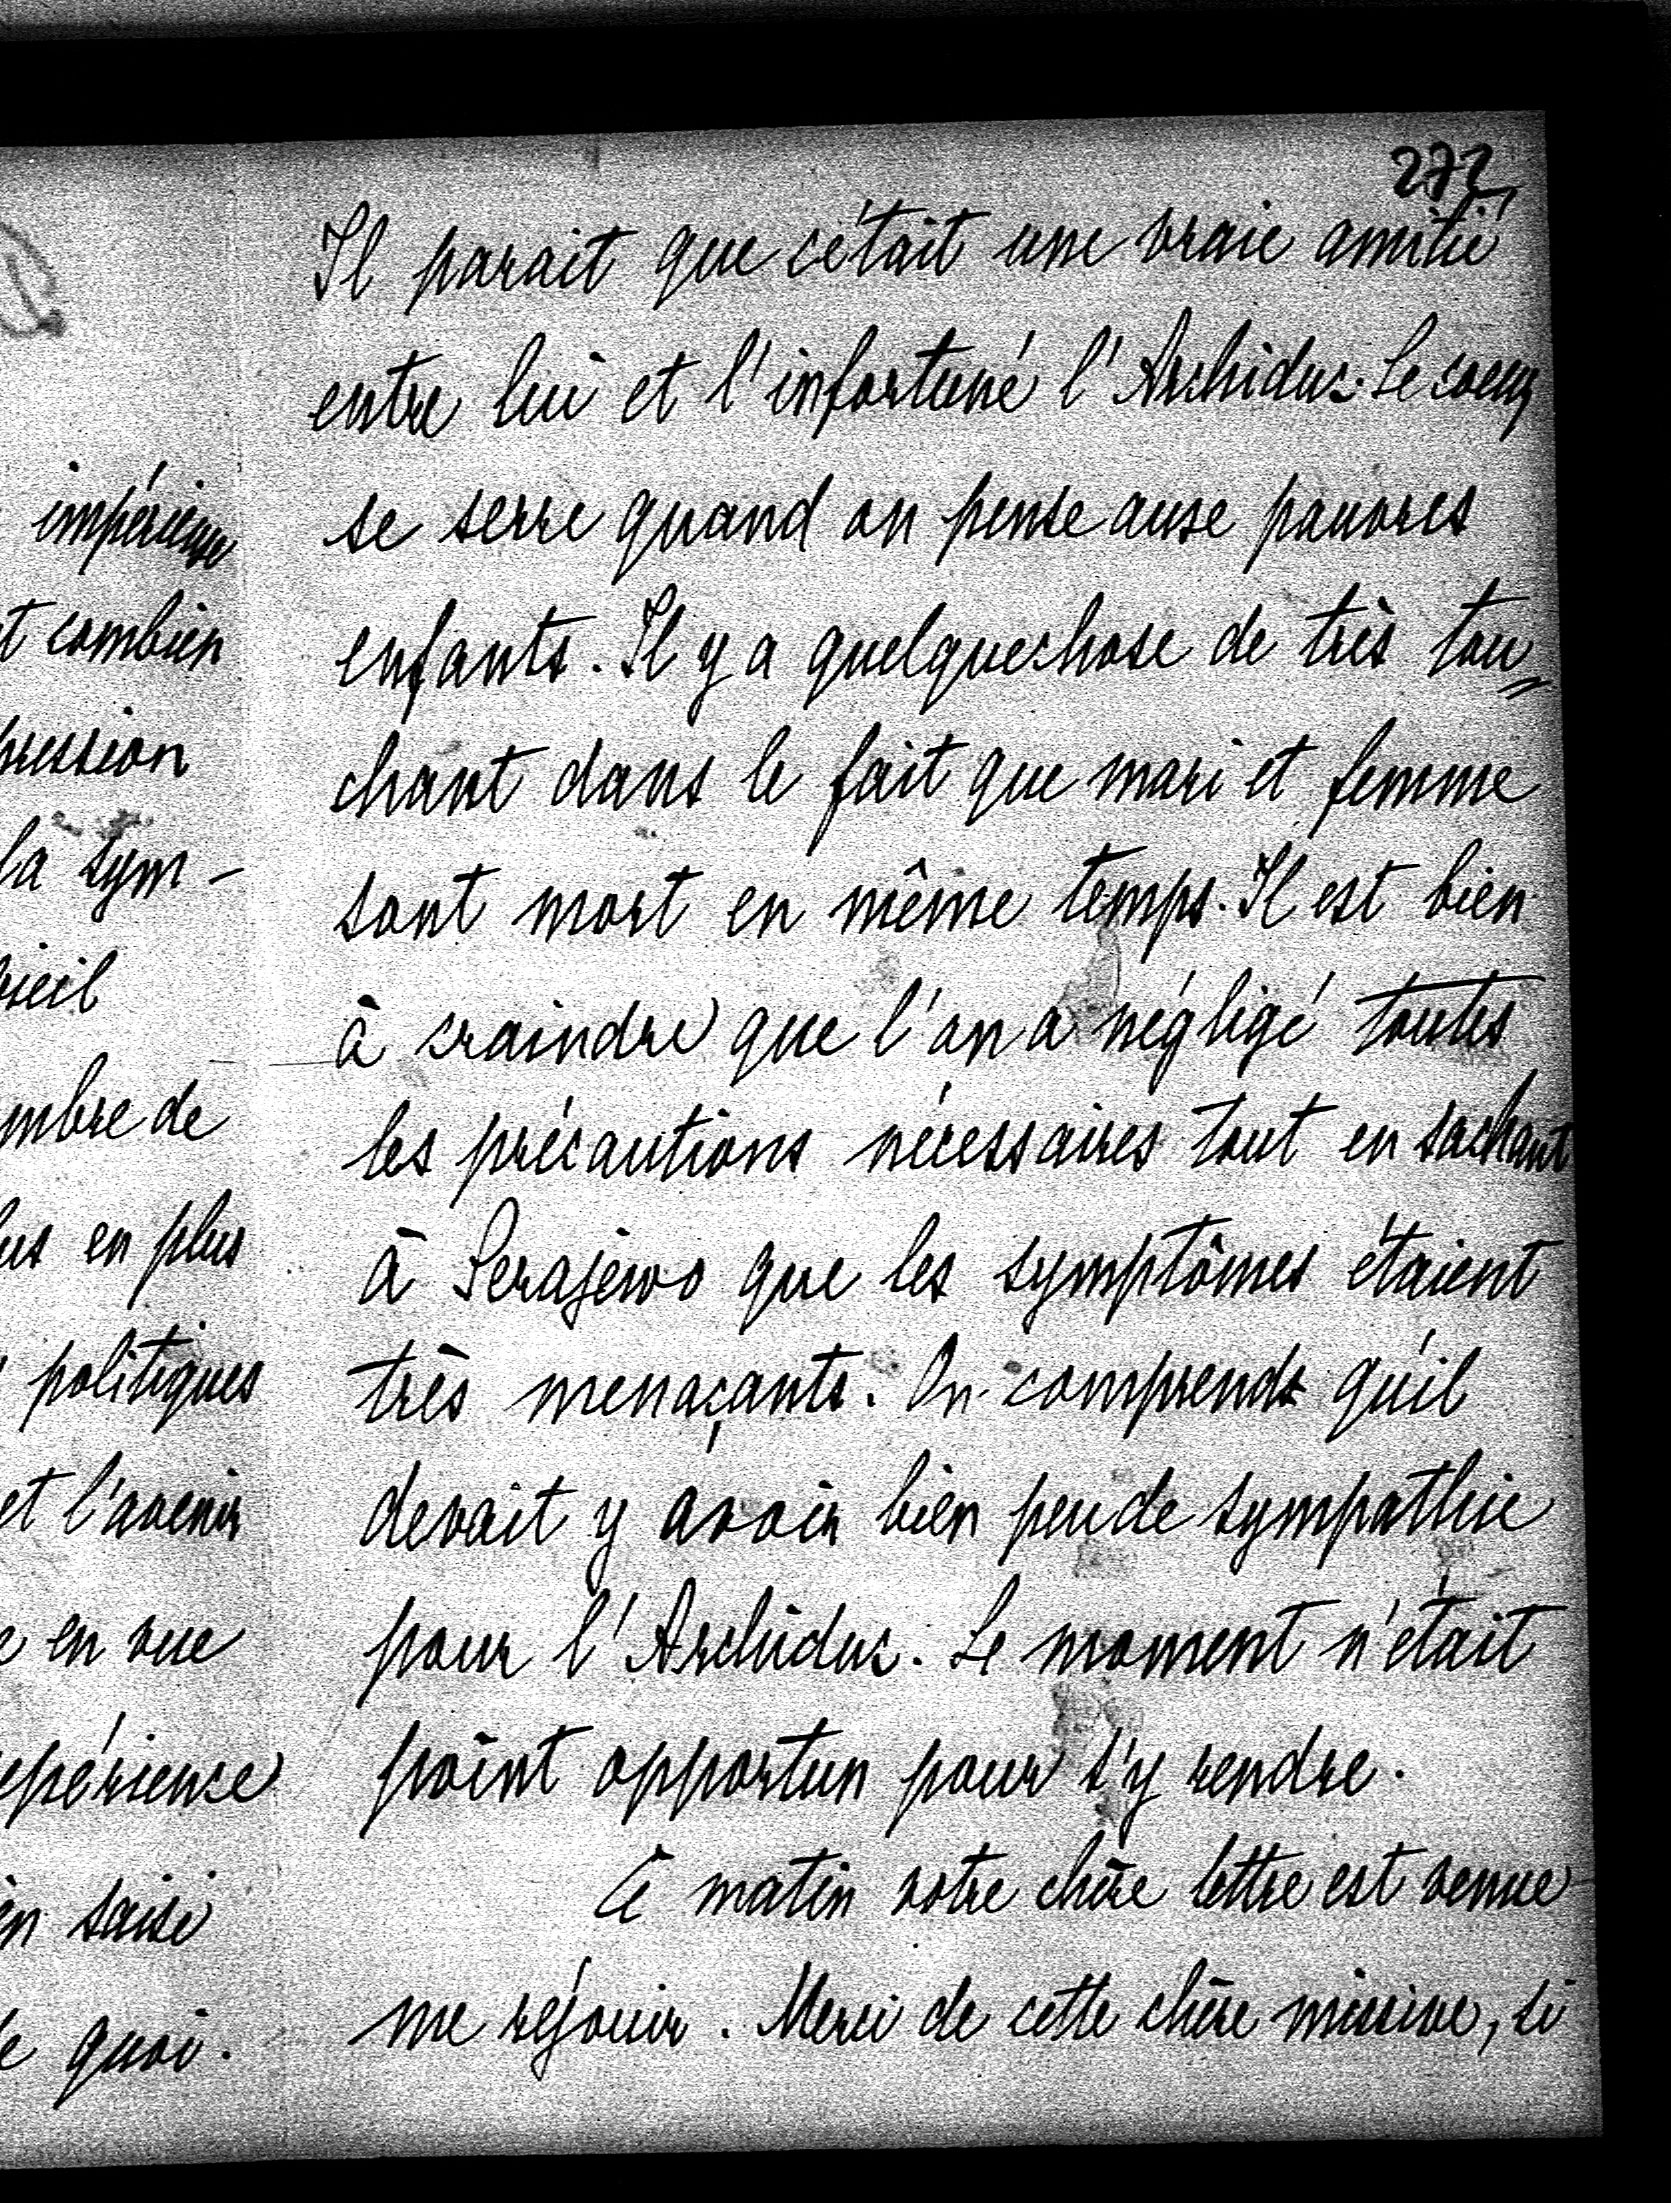 impérieuse
t combien
pression
la sym-
vieil
mbre de
us en plus
politiques
et l'avenir
en vue
xpérience
en saisi
e quoi.
272
Il parait que c'était une vraie amitié
entre lui et l'infortuné l'Archiduc. Le coeur
se serre quand on pense aux pauvres
enfants. Il y a quelquechose de très tou=
chant dans le fait que mari et femme
sont mort en même temps. Il est bien
à craindre que l'on a négligé toutes
les précautions nécessaires tout en sachant
à Serajèwo que les symptômes étaient
très menaçants. On comprends qu'il
devait y avoir bien peu de sympathie
pour l'Archiduc. Le moment n'était
point opportun pour s'y rendre.
Ce matin votre chère lettre est venue
me réjouir. Merci de cette chère missive, si